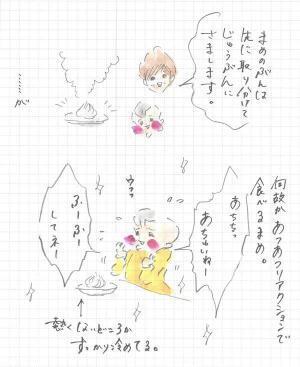 まめのぶんは
先に取り分けて
じゅうぶんに
さまします。
……が
何故かあつあつリアクションで
食べるまめ。
あちちっ
あちゅいねー
ウフッ
ふーふー
してネー
熱くはないどころか
すっかり冷めてる。